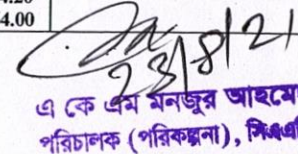 4.00
23/8/21
এ কে এম মনজুর আহমে
পরিচালক (পরিকল্পনা), সিএ